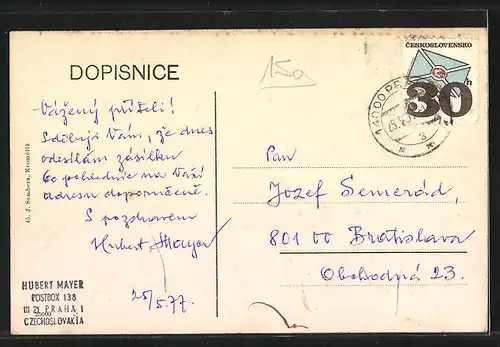 DOPISNICE
150
ČESKOSLOVENSKO
30 h
Vážený příteli!
Sděluji Vám, že dnes
odesílám zásilku
60 pohlednic na Vaší
adresu doporučeně.
S pozdravem
Hubert Mayer
25/5.77.
HUBERT MAYER
POSTBOX 138
III 21 PRAHA 1
CZECHOSLOVAKIA
45. J. Sembera, Kroměříž
140 00 PRAHA
Pan
Jozef Semerád,
801 00 Bratislava
Obchodná 23.